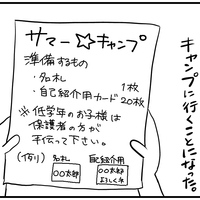 キャンプに行くことになった。
サマー☆キャンプ
準備するもの
・名札 1枚
・自己紹介用カード 20枚
※低学年のお子様は
保護者の方が
手伝って下さい。
(例) 名札 自己紹介用
〇〇太郎 〇〇太郎